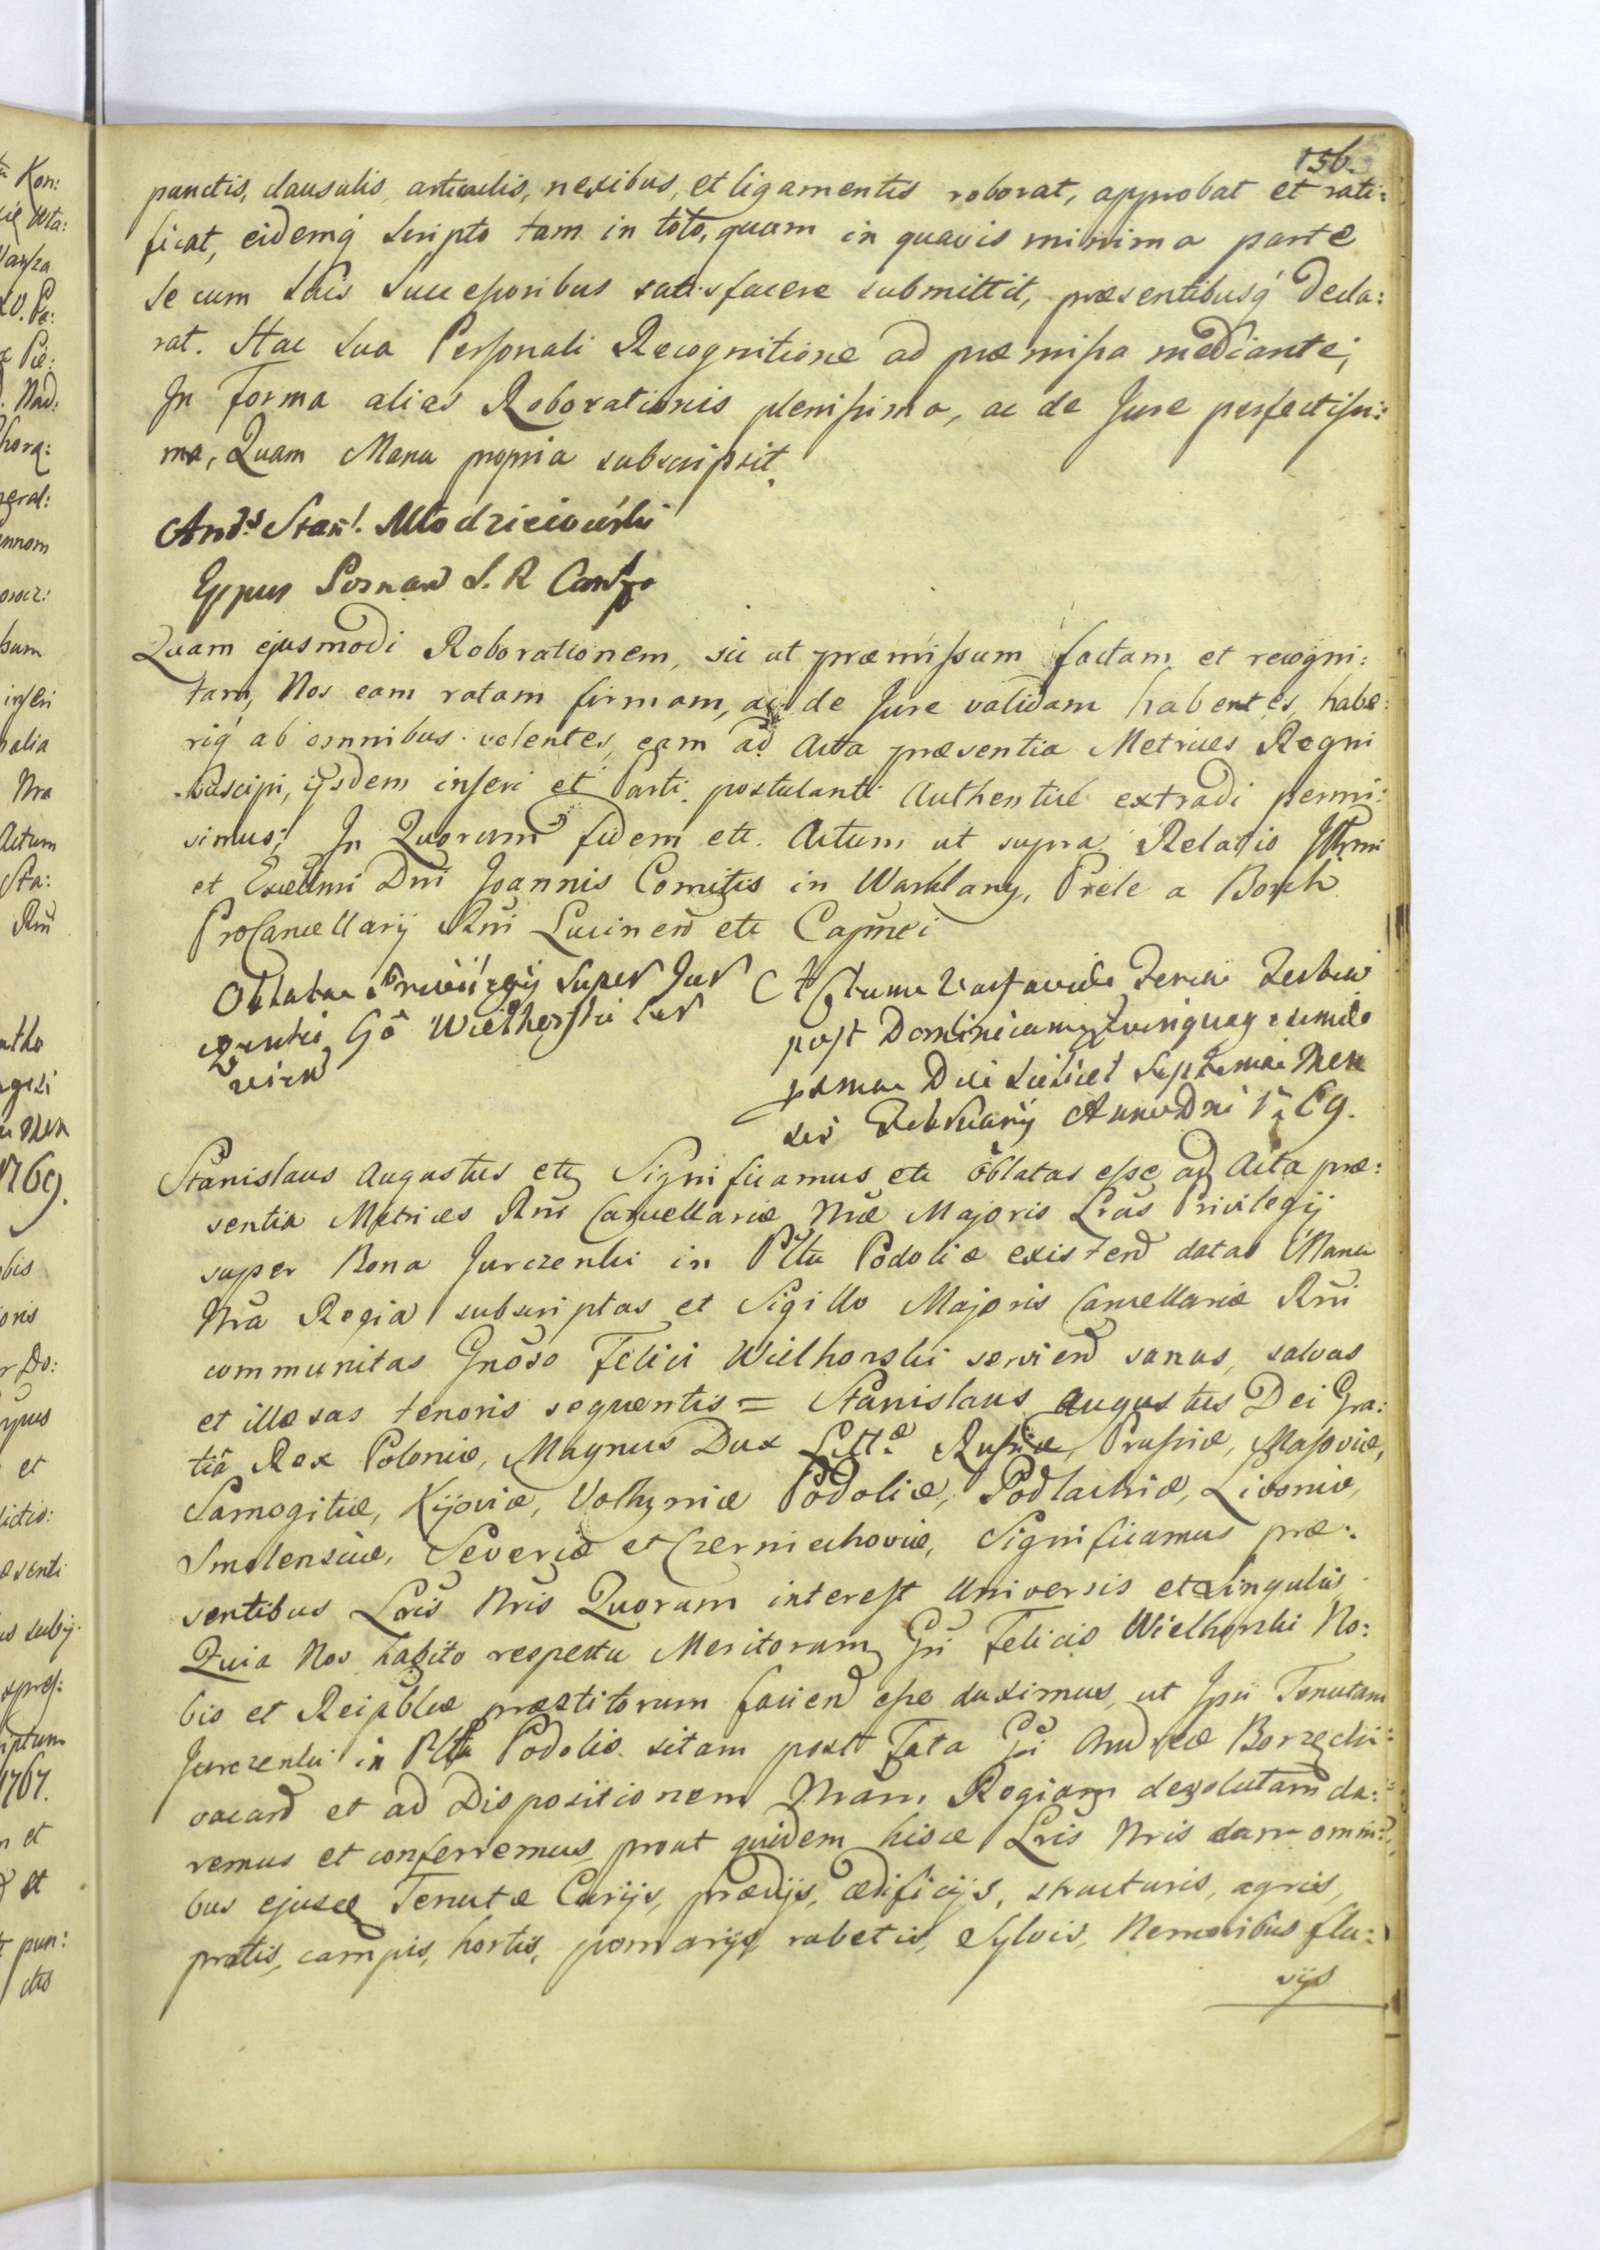 156.
punctis, clausulis, articulis, nexibus, et ligamentis roborat, approbat et rati:
ficat, eidemq́ scripto tam in toto, quam in quavis minima parte
se cum suis successoribus satisfacere submittit, præsentibusq́ decla:
rat. Hac sua Personali Recognitione ad præmissa mediante;
In forma alias Roborationis plenissima, ac de Jure perfectissi:
ma, Quam Manu propria subscripsit.
And: Stan: Młodzieiowski
Eppus Posnan S. R Canc
Quam ejusmodi Roborationem, sic ut præmissum factam et recogni:
tam, Nos eam ratam firmam, ac de Jure validam habentes, habe:
riq́ ab omnibus volentes, eam ad Acta præsentia Metrices Regni
suscipi, ijsdem inseri et Parti postulanti Authentice extradi permi:
simus; In Quorum fidem etc. Actum ut supra Relatio Illmi
et Excellmi Dni Joannis Comitis in Warklany, Prele a Borch
ProCancellarij Rni Lucinen etc Capnei
Oblata Privilegij super Jur
czenki Gō Wielhorski ser
vien
Actum Varsaviæ Feria Tertia
post Dominicam Quinquagesimæ
proxima Die scilicet Septima Men
sis Februarij Anno Dni 1769.
Stanislaus Augustus etc Significamus etc oblatas esse ad Acta præ:
sentia Metrices Rni Cancellariæ Nræ Majoris Lras Privilegij
super Bona Jurczenki in Pltu Podoliæ existen datas Manu
Nra Regia subscriptas et Sigillo Majoris Cancellariæ Rni
communitas Gnoso Felici Wielhorski servien sanas, salvas
et illæsas tenoris sequentis = Stanislaus Augustus Dei Gra:
tia Rex Poloniæ, Magnus Dux Littæ Russiæ, Prussiæ, Masoviæ,
Samogitiæ, Kijoviæ, Volhyniæ Podoliæ, Podlachiæ, Livoniæ,
Smolensciæ, Severiæ et Czerniechoviæ, Significamus præ:
sentibus Lris Nris Quorum interest Universis et singulis
Quia Nos habito respectu Meritorum Gni Felicis Wielhorski No:
bis et Reipblicæ præstitorum facien esse duximus, ut Ipsi Tenutam
Jurczenki in Pltu Podolio sitam post Fata Gni Andreæ Borzęcki:
vacan et ad Dispositionem Nram Regiam devolutam da:
remus et conferremus prout quidem hisce Lris Nris dam omni:
bus ejusce Tenutæ Curijs, prædijs, ædificijs, structuris, agris,
pratis, campis, hortis, pomarijs, rubetis, Sylvis, Nemoribus flu:
vijs